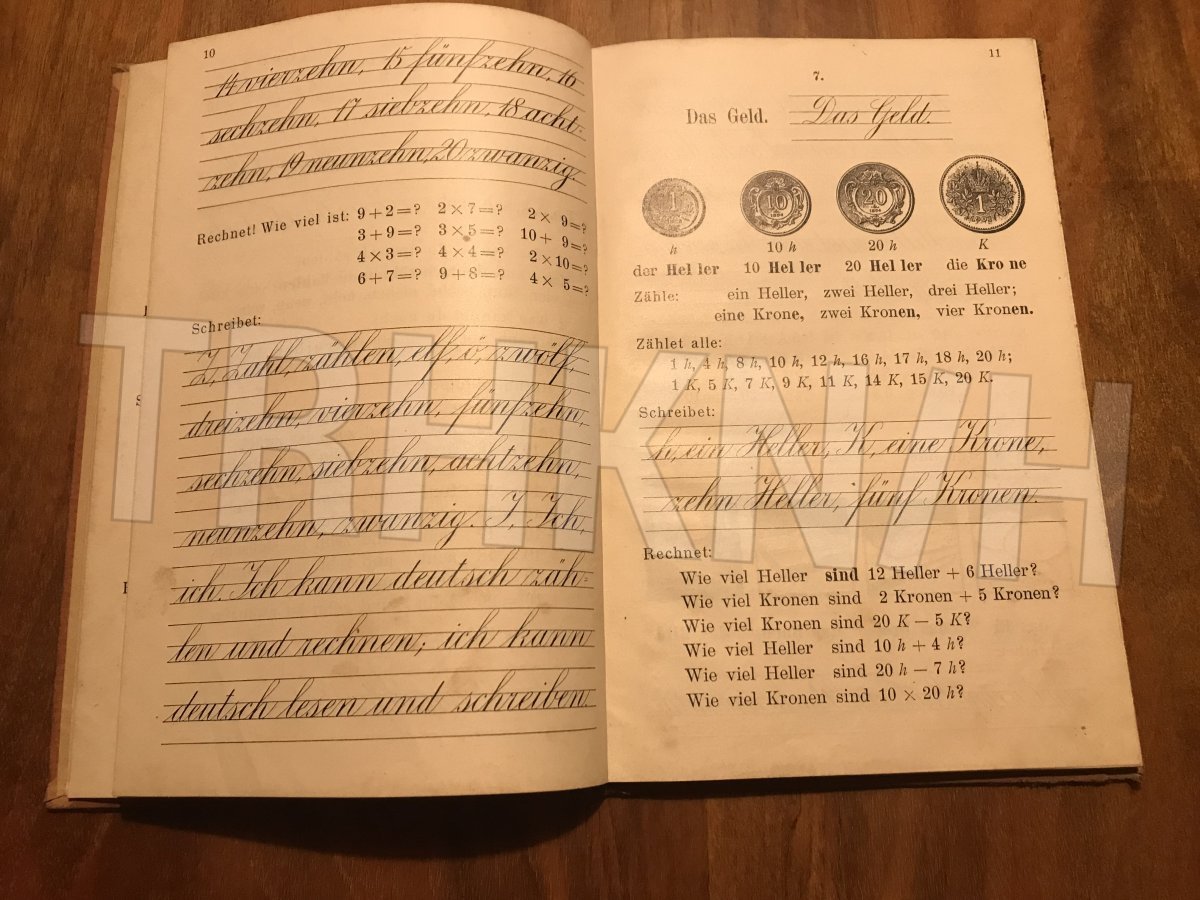 10
14 vierzehn, 15 fünfzehn, 16
sechzehn, 17 siebzehn, 18 acht-
zehn, 19 neunzehn, 20 zwanzig.
Rechnet! Wie viel ist: 9 + 2 = ? 2 × 7 = ? 2 × 9 = ?
3 + 9 = ? 3 × 5 = ? 10 + 9 = ?
4 × 3 = ? 4 × 4 = ? 2 × 10 = ?
6 + 7 = ? 9 + 8 = ? 4 × 5 = ?
Schreibet:
Z, Zahl, zählen, elf, ö, zwölf,
dreizehn, vierzehn, fünfzehn,
sechzehn, siebzehn, achtzehn,
neunzehn, zwanzig. I, Ich,
ich. Ich kann deutsch zäh-
len und rechnen; ich kann
deutsch lesen und schreiben.
11
7.
Das Geld. Das Geld.
1 10 20 1
h 10 h 20 h K
der Hel ler 10 Hel ler 20 Hel ler die Kro ne
Zähle: ein Heller, zwei Heller, drei Heller;
eine Krone, zwei Kronen, vier Kronen.
Zählet alle:
1 h, 4 h, 8 h, 10 h, 12 h, 16 h, 17 h, 18 h, 20 h;
1 K, 5 K, 7 K, 9 K, 11 K, 14 K, 15 K, 20 K.
Schreibet:
h, ein Heller, K, eine Krone,
zehn Heller, fünf Kronen.
Rechnet:
Wie viel Heller sind 12 Heller + 6 Heller?
Wie viel Kronen sind 2 Kronen + 5 Kronen?
Wie viel Kronen sind 20 K − 5 K?
Wie viel Heller sind 10 h + 4 h?
Wie viel Heller sind 20 h − 7 h?
Wie viel Kronen sind 10 × 20 h?
TRHKNVH